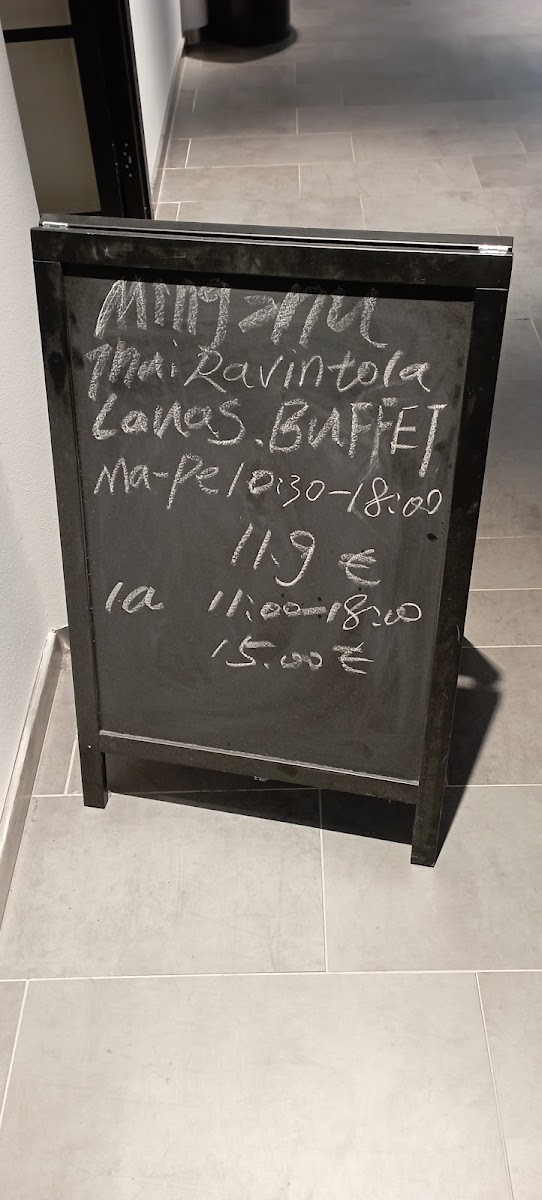 Thai Ravintola
Lanas. BUFFET
Ma-Pe 10:30-18:00
11.9 €
la 11:00-18:00
15.00 €